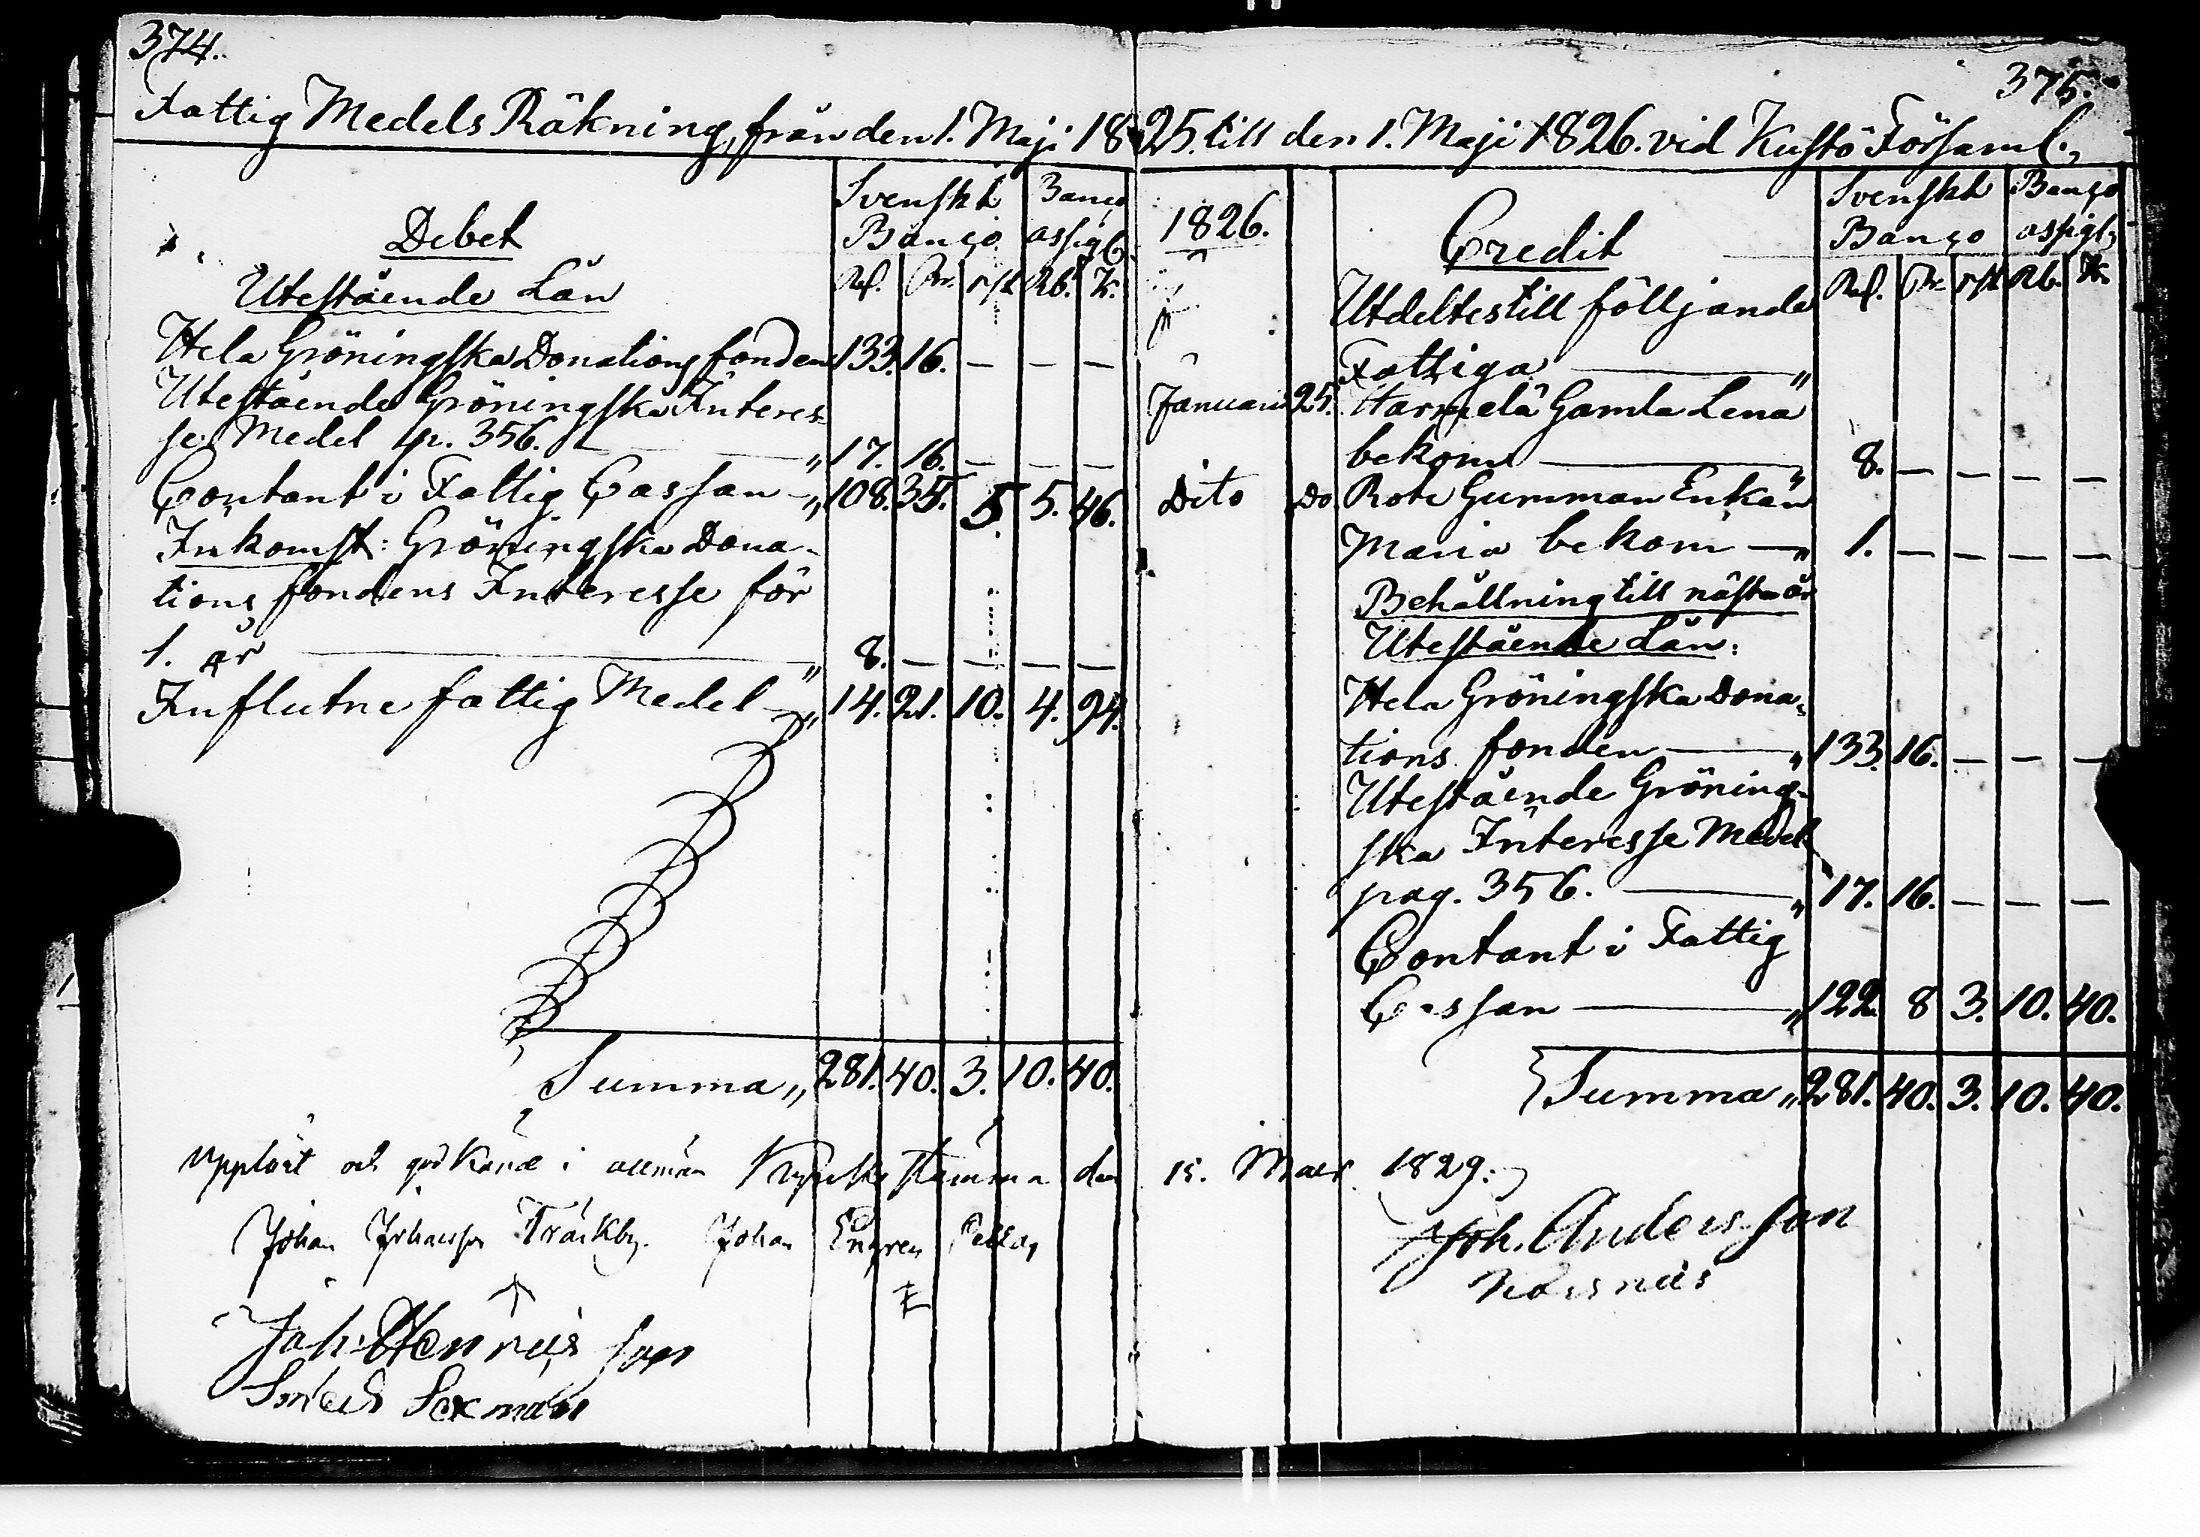 374.
Fattig Medels Räkning, från den 1. Maji 18
Svenskt Banco
Debet Banço assigl.
Utestående Lån Rd. rst Rb. K.
Hela Gröningska Donations fonden 133. 16. — — —
Utestående Gröningska Interes-
se Medel p. 356. — „ 17. 16. — — —
Contant i Fattig Cassan — „ 108. 35. 5. 5. 46.
Inkomst: Gröningska Dona-
tions fondens Interesse för
1. år — „ 8. — — — —
Influtne fattig Medel — „ 14. 21. 10. 4. 94.
Summa „ 281. 40. 3. 10. 40.
Upplöst och godkänd i allmän Kyrko stämma den
Johan Johansson Träskby. Johan
Joh: Henricsson
Sexman
375.
25. till den 1. Maji 1826. vid Kustö Församl.,
Svenskt Banço
1826. Credit Banço assigl.
Utdeltes till följande Rd. rst Rb. K.
Fattiga — „
Januari 25. Gamla Lena
bekom — „ 8. — — — —
Dito Do Rote Gumman Enkan
Maria bekom — „ 1. — — — —
Behållning till nästa år
Utestående Lån:
Hela Gröningska Dona-
tions fonden — „ 133. 16. — — —
Utestående Gröning-
ska Interesse Medel
pag. 356. — „ 17. 16. — — —
Contant i Fattig
Cassan — „ 122. 8 3. 10. 40.
Summa „ 281. 40. 3. 10. 40.
15. Mars 1829.
Joh. Andersson